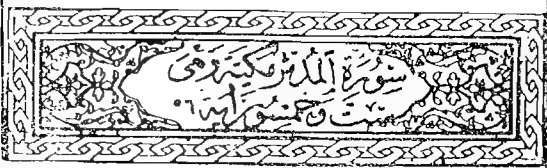 سورة المدثر مكية وهي
ست وخمسون آية